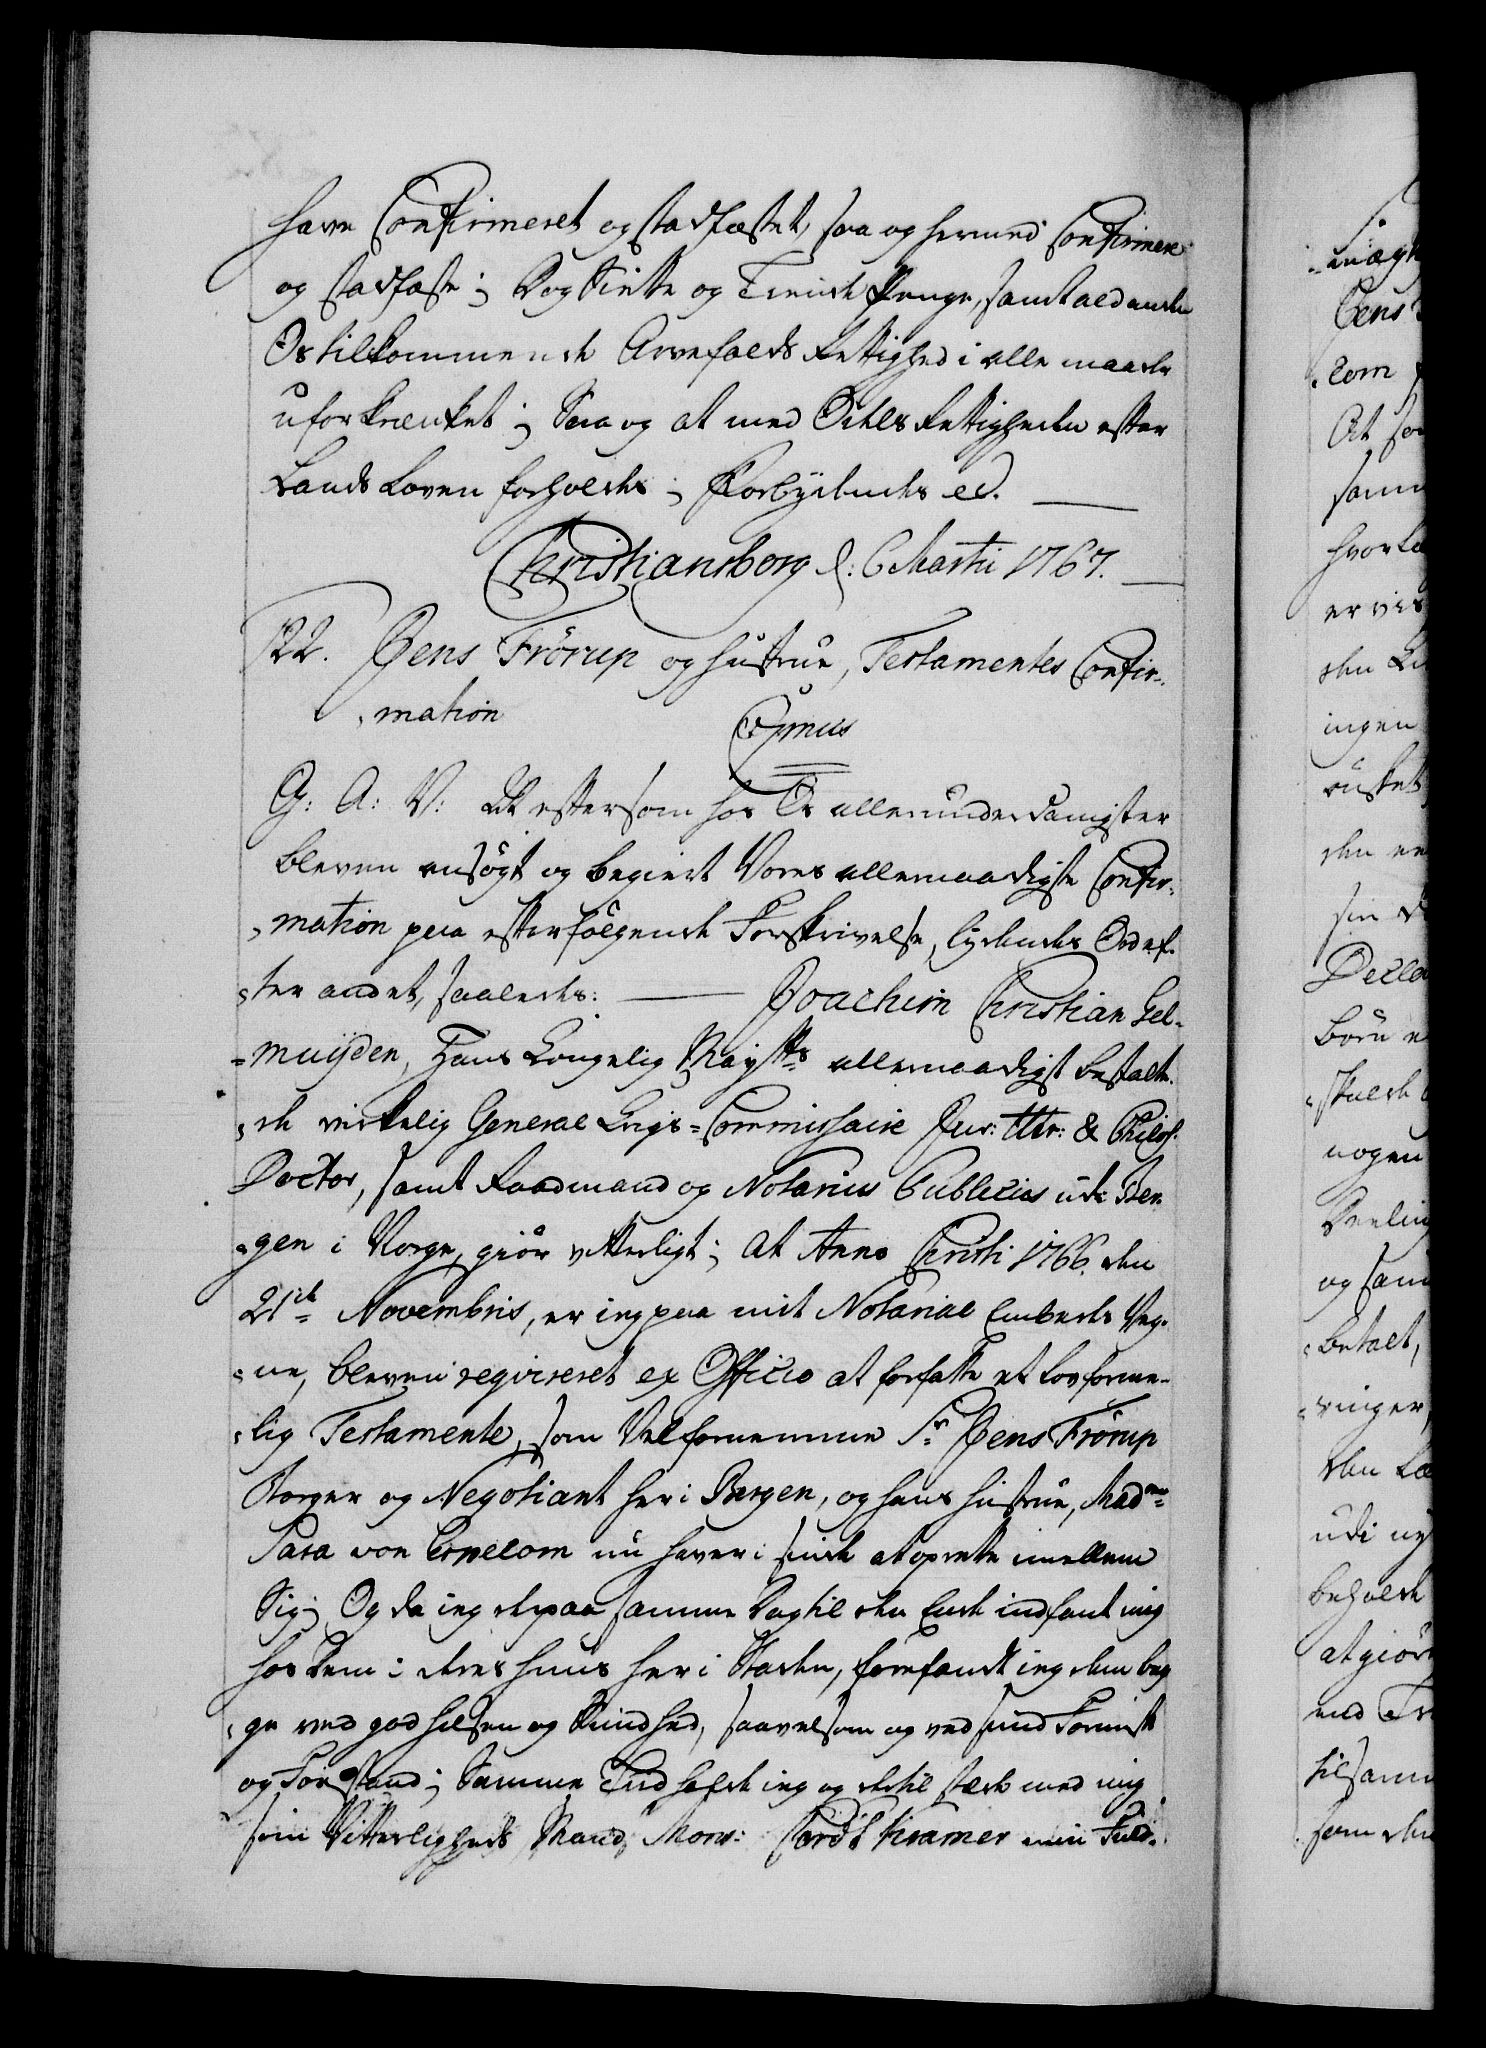 have Confirmeret og stadfæstet, saa og hermed Confirmere
og stadfæste; Dog Siette og Tiende Penge, samt ald anden
Os tilkommende Arvefalds Rettighed i alle maader
uforkrænket; Saa og at med Odels Rettigheden efter
Lands Loven forholdes; Forbydendes etc.
Christiansborg d: 6 Martii 1767.
122. Jens Frörup og Hustrue, Testamentes Confir-
mation
G: A: V: At eftersom hos Os allerunderdanigster
bleven ansögt og begiert Vores allernaadigste Confir-
mation paa efterfölgende Forskrivelse, lydendes Ord ef-
ter andet, saaledes: Joachim Christian Gel-
muyden, Hans Kongelig Mayts allernaadigst bestalte-
de virkelig General Krigs-Commissaire Jur: Utr: & Philos:
Doctor, samt Raadmand og Notarius Publicus udi Ber-
gen i Norge, giör vitterligt; at Anno Christi 1766. den
21de Novembris, er ieg paa mit Notarial Embeds Veg-
ne, bleven reqvireret ex Officio at forfatte et lovforme-
lig Testamente, som Velfornemme Sr Jens Frörup
Borger og Negotiant her i Bergen, og hans Hustrue, Madme
Sara von Erpecom nu haver i sinde at oprette imellem
Sig; Og da ieg derpaa samme Dag til den Ende indfant mig
hos Dem i deres Huus her i Staden, forefandt ieg dem beg-
ge ved god Helsen og Sundhed, saavelsom og ved sund Fornuft
og Forstand; Samme Tid hafde ieg og dertil stæde med mig
som Vitterligheds Mand, Mons: Cordt Kramer min Fuld-